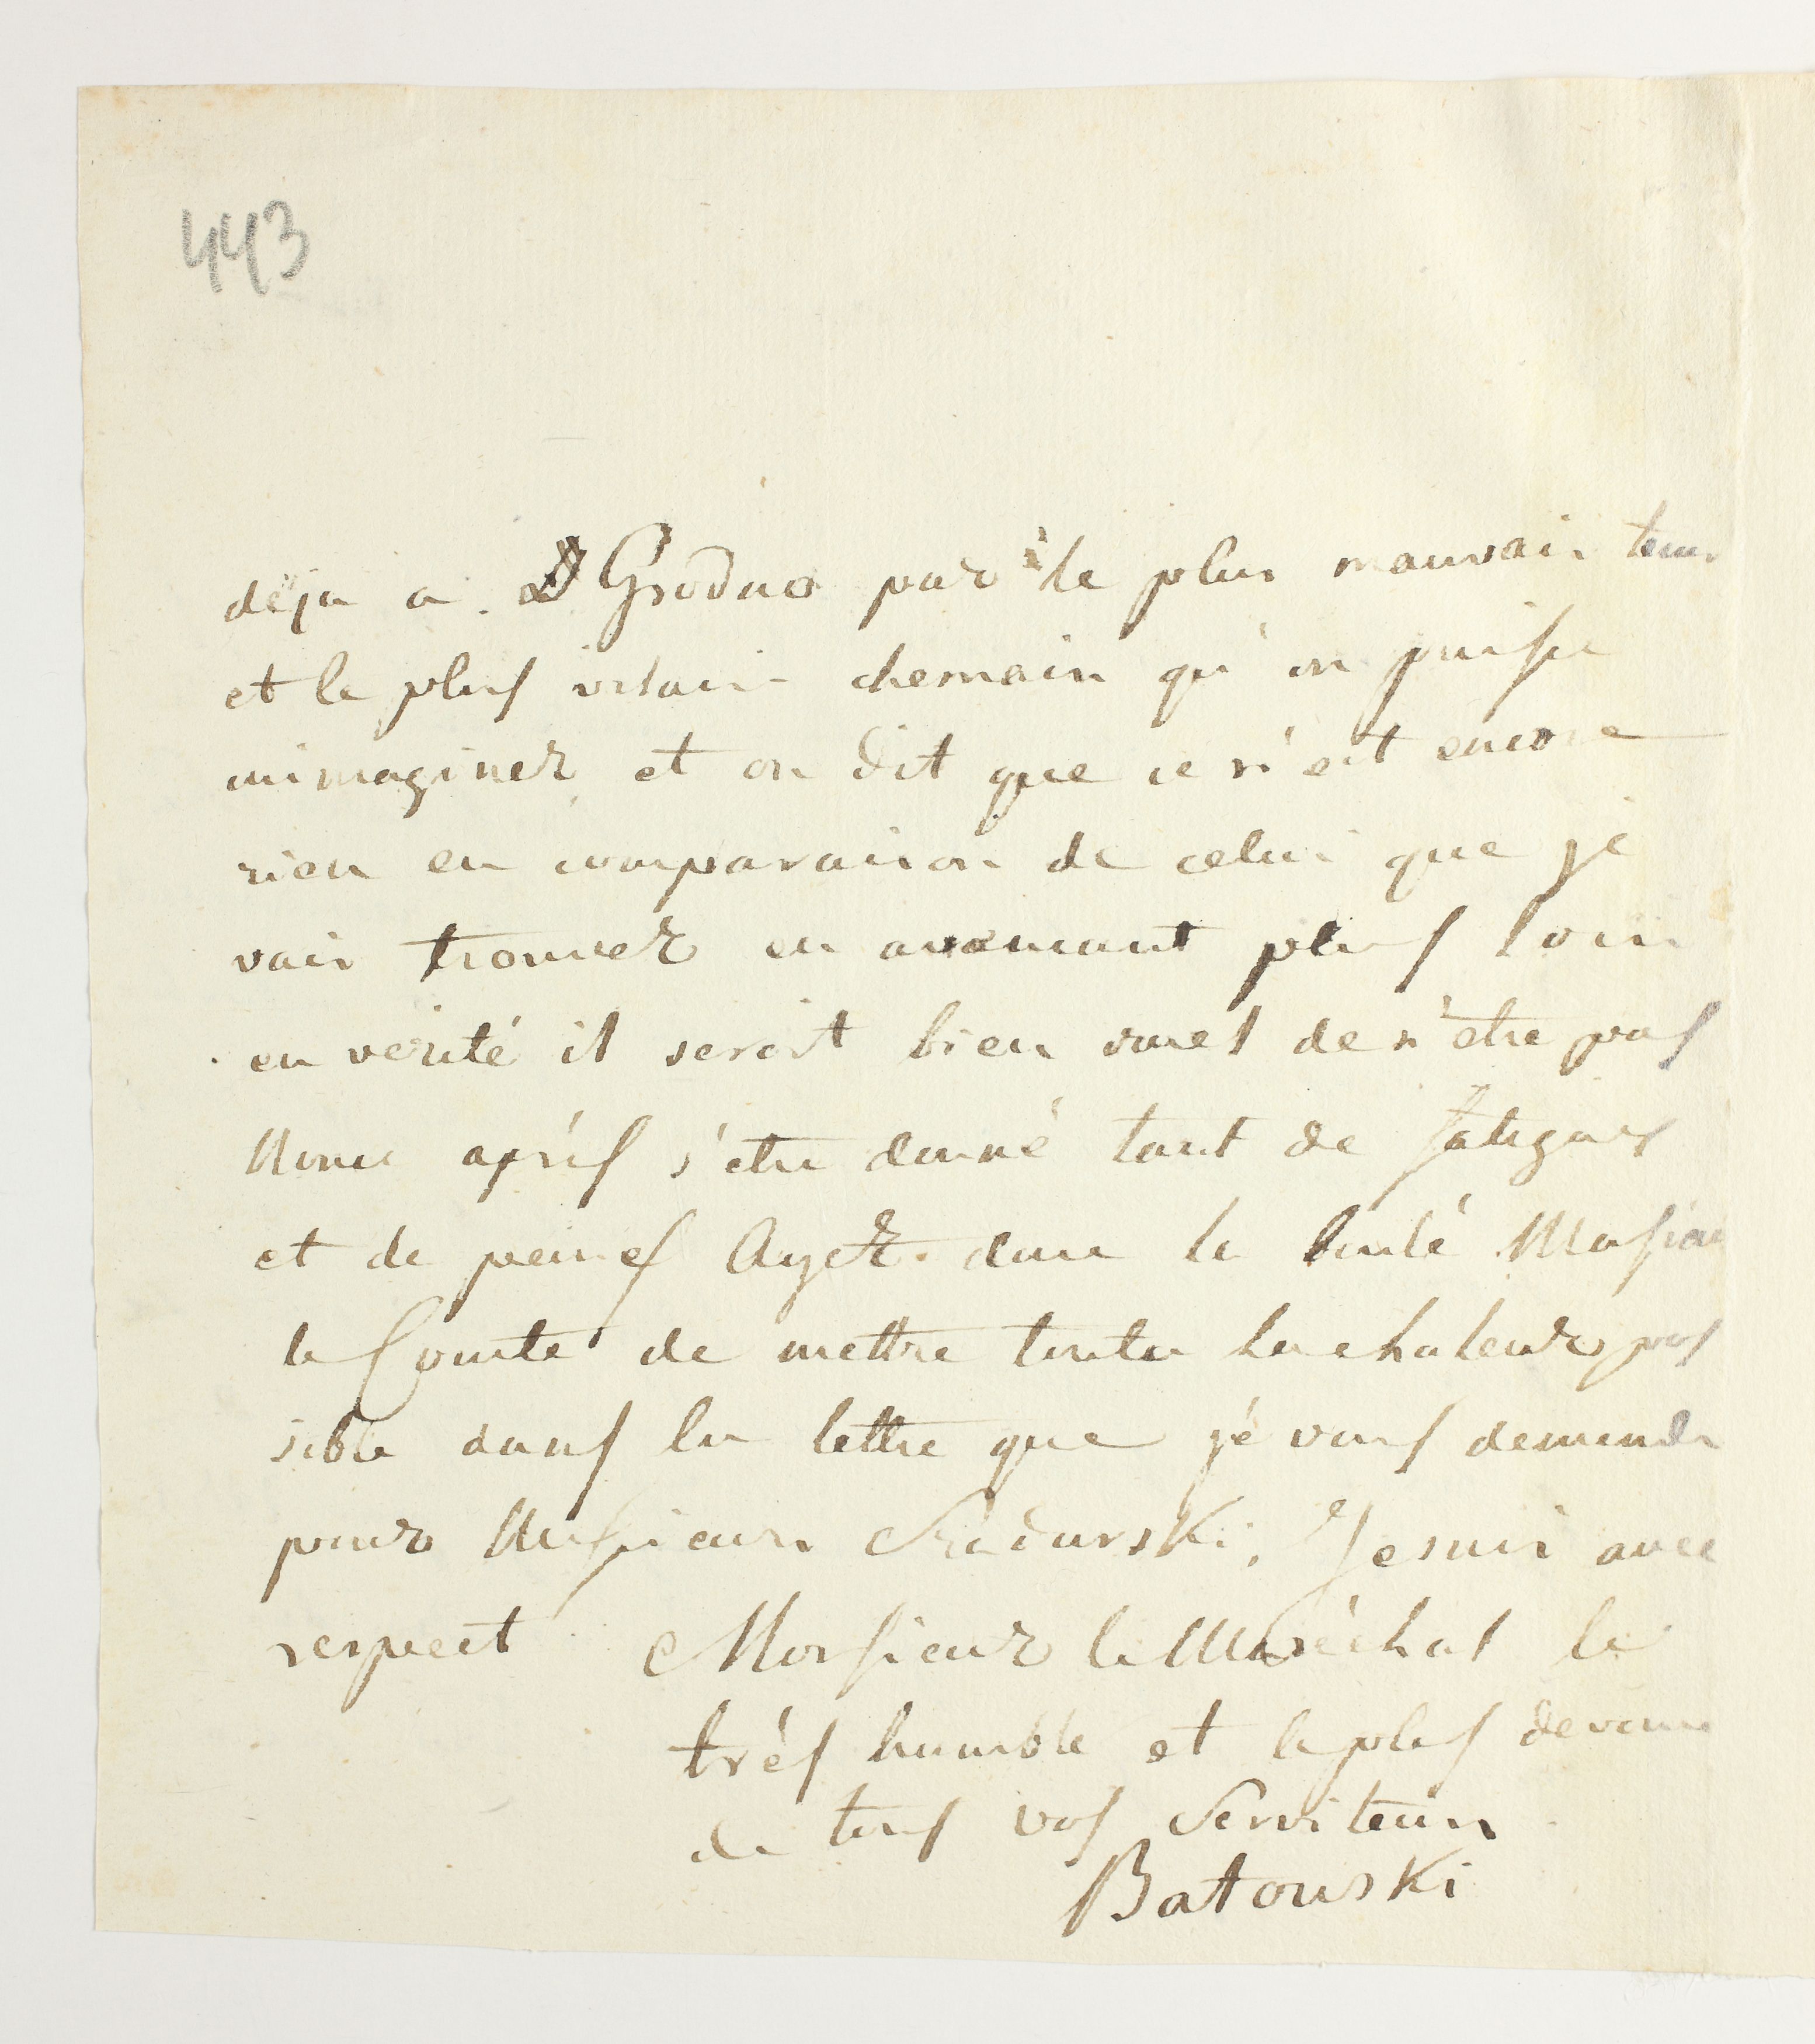 443
deja a Grodno par le plus mauvais tems
et le plus vilain chemain qu'on puisse
imaginer et on dit que ce n'est encore
rien en comparaison de celui que je
vais trouver en avancant plus loin
en verité il seroit bien cruel de n'etre pas
Nonce aprés s'etre donné tant de fatigues
et de peines Ayez donc la bonté Monsieur
le Comte de mettre toute la chaleur pos
sible dans la lettre que je vous demande
pour Messieurs Je suis avec
respect Monsieur le Maréchal le
trés humble et le plus devoué
de tous vos Serviteurs
Batowski